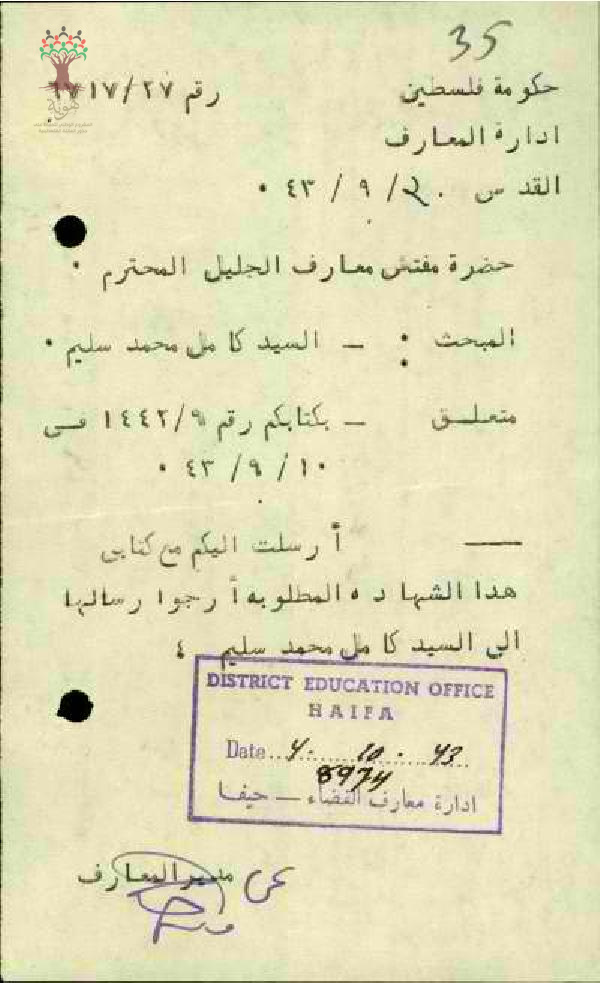 35
حكومة فلسطين
رقم ١٧١٧/٢٧
ادارة المعارف
القدس ٩ / ٤٣ ٠
حضرة مفتش معارف الجليل المحترم ٠
المبحث : ـ السيد كامل محمد سليم ٠
متعلـق ـ بكتابكم رقم ١٤٤٢/٩ فى
١٠ / ٩ / ٤٣ ٠
أرسلت اليكم مع كتابى
هذا الشهاده المطلوبه أرجوا رسالها
الى السيد كامل محمد سليم ٤
DISTRICT EDUCATION OFFICE
HAIFA
Date 4. 10. 43
8974
ادارة معارف القضاء — حيفا
عن مدير المعارف